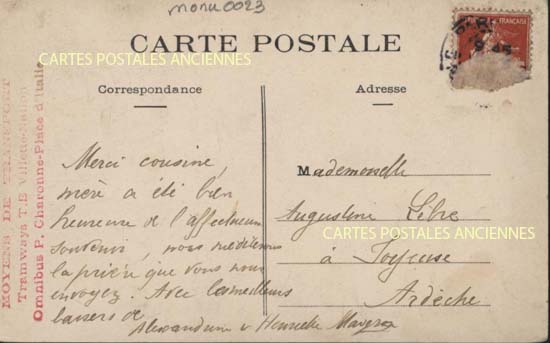 monu0023
CARTES POSTALES ANCIENNES
CARTE POSTALE
Correspondance
Adresse
MOYENS DE TRANSPORT
Tramways T.E Villette-Nation
Omnibus P. Charonne-Place d'Italie
FRANÇAISE
Merci cousine,
mère a été bien
heureuse de l'affectueux
souvenir, nous
la prière que vous nous
envoyez. Avec les meilleurs
baisers de
Alexandrine & Henriette
Mademoiselle
Augustine Libre
CARTES POSTALES ANCIENNES
à Joyeuse
Ardèche